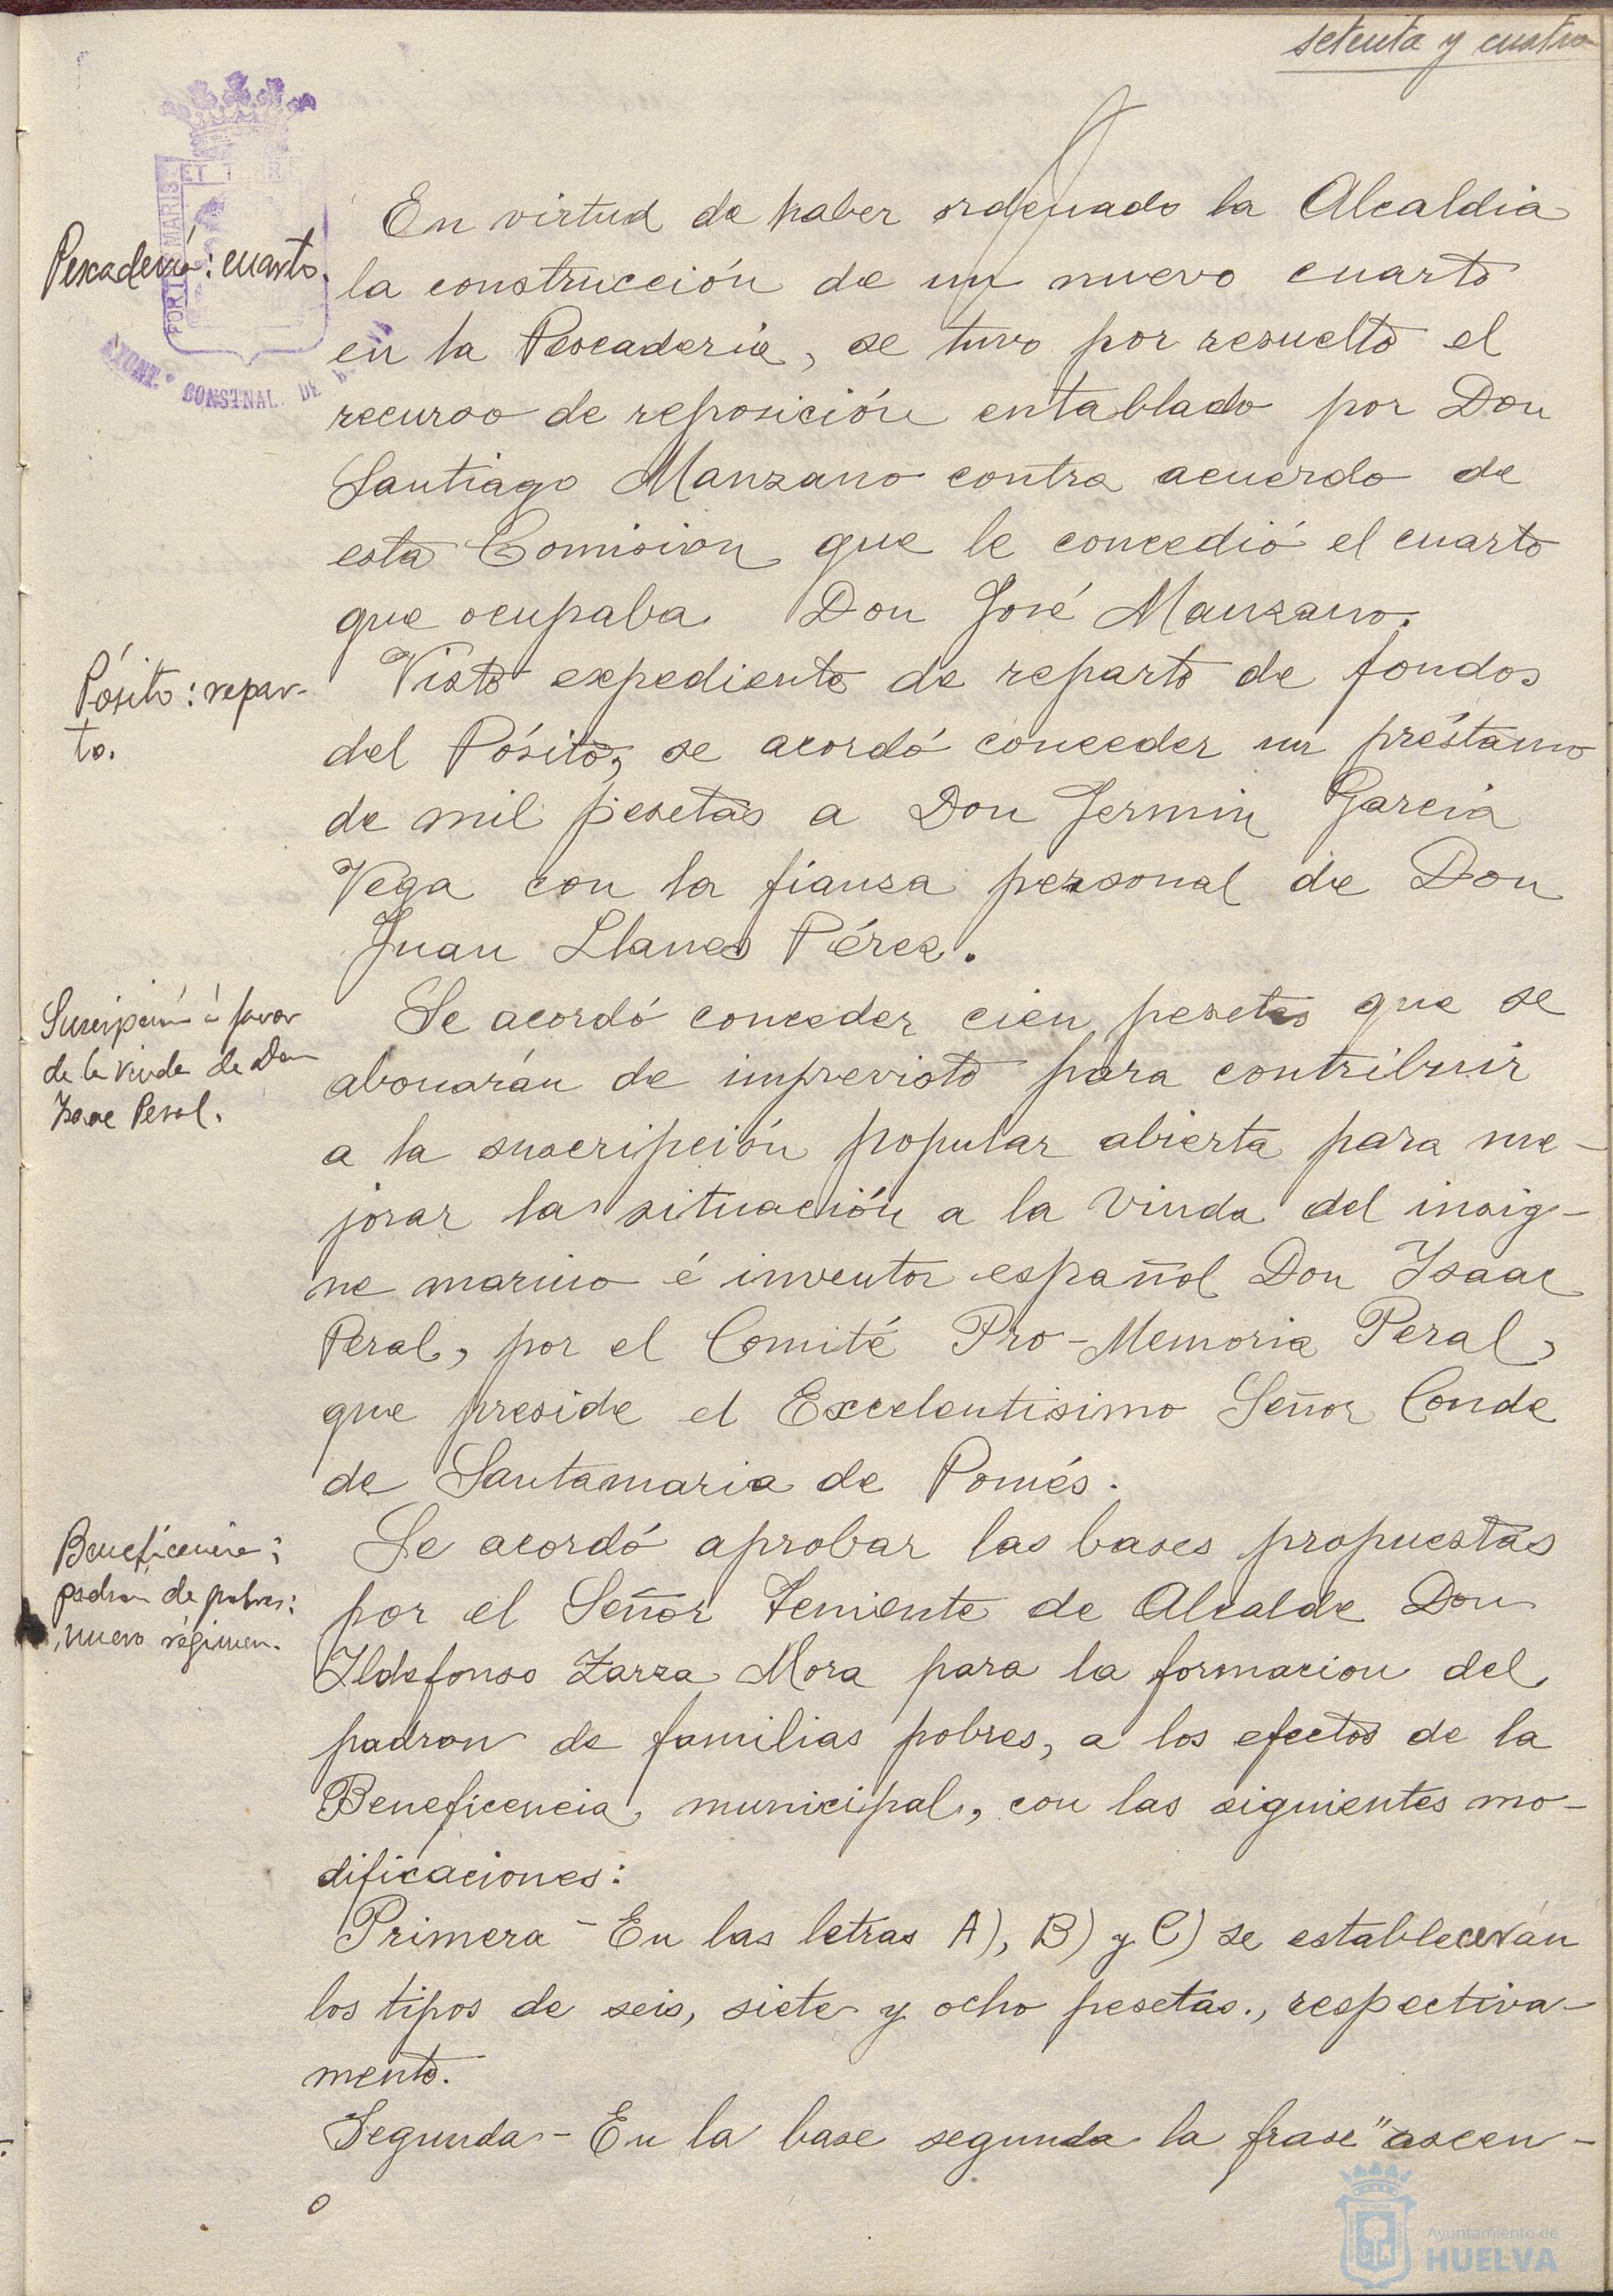 setenta y cuatro
Pescadería: cuarto.
En virtud de haber ordenado la Alcaldia
la construcción de un nuevo cuarto
en la Pescaderia, se tuvo por resuelto el
recurso de reposición entablado por Don
Santiago Manzano contra acuerdo de
esta Comision que le concedió el cuarto
que ocupaba Don José Manzano.
Pósito: repar-
to.
Visto expediente de reparto de fondos
del Pósito, se acordó conceder un préstamo
de mil pesetas a Don Fermin Garcia
Vega con la fianza personal de Don
Juan Llanes Pérez.
Suscripción á favor
de la viuda de Don
Isaac Peral.
Se acordó conceder cien pesetas que se
abonarán de imprevisto para contribuir
a la suscripción popular abierta para me-
jorar la situación a la viuda del insig-
ne marino é inventor español Don Isaac
Peral, por el Comité Pro-Memoria Peral,
que preside el Excelentisimo Señor Conde
de Santamaria de Pomés.
Beneficencia:
padron de pobres:
nuevo régimen.
Se acordó aprobar las bases propuestas
por el Señor Teniente de Alcalde Don
Ildefonso Zarza Mora para la formacion del
padron de familias pobres, a los efectos de la
Beneficencia municipal, con las siguientes mo-
dificaciones:
Primera - En las letras A), B) y C) se establecerán
los tipos de seis, siete y ocho pesetas., respectiva-
mente.
Segunda - En la base segunda la frase "ascen-
FORIS MARIS ET TERRE
AYUNT. CONSTNAL. DE
Ayuntamiento de
HUELVA